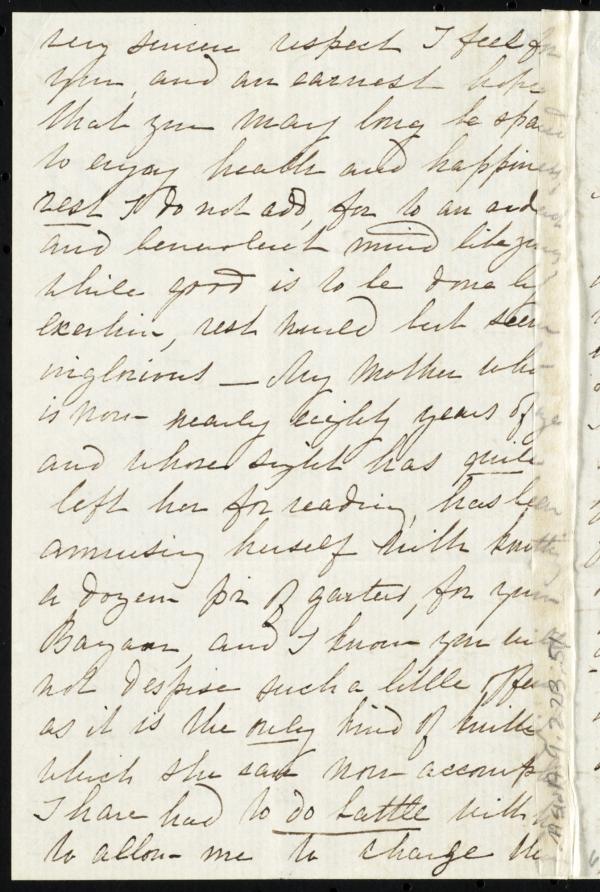 very sincere respect I feel for
you, and an earnest hope
that you may long be spared
to enjoy health and happiness,
rest I do not add, for to an
and benevolent mind like yours
while good is to be done by
exertion, rest would but seem
inglorious — My Mother who
is now nearly eighty years of age
and whose sight has quite
left her for reading, has been
amusing herself with knitting
a dozen pr of garters, for your
Bazaar, and I know you will
not despise such a little
as it is the only kind of
which she can now
I have had to do battle with
to allow me to charge